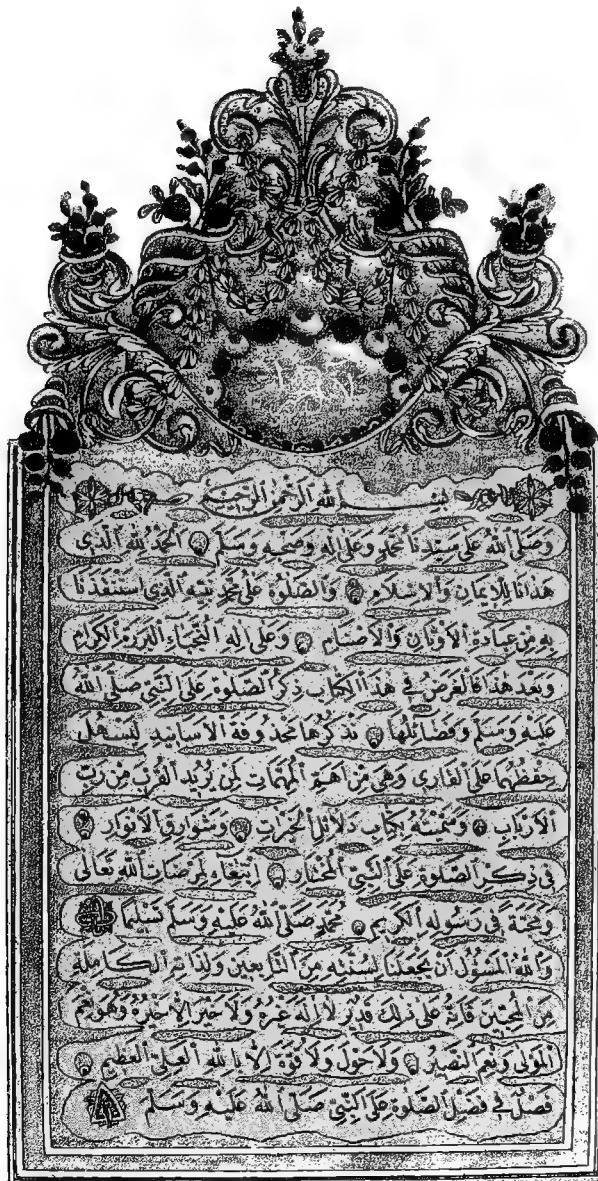 بِسْمِ اللهِ الرَّحْمٰنِ الرَّحِيمِ
وَصَلَّى اللهُ عَلَى سَيِّدِنَا مُحَمَّدٍ وَعَلَى اٰلِهِ وَصَحْبِهِ وَسَلَّمَ اَلْحَمْدُ لِلّٰهِ الَّذِى
هَدَانَا لِلْاِيمَانِ وَالْاِسْلَامِ وَالصَّلٰوةُ عَلَى مُحَمَّدٍ نَبِيِّهِ الَّذِى اسْتَنْقَذَنَا
بِهِ مِنْ عِبَادَةِ الْاَوْثَانِ وَالْاَصْنَامِ وَعَلَى اٰلِهِ النُّجَبَاءِ الْبَرَرَةِ الْكِرَامِ
وَبَعْدَ هٰذَا فَالْغَرَضُ فِى هٰذَا الْكِتَابِ ذِكْرُ الصَّلٰوةِ عَلَى النَّبِىِّ صَلَّى اللهُ
عَلَيْهِ وَسَلَّمَ وَفَضَآئِلُهَا نَذْكُرُهَا مَحْذُوفَةَ الْاَسَانِيدِ لِيَسْهُلَ
حِفْظُهَا عَلَى الْقَارِى وَهِىَ مِنْ اَهَمِّ الْمُهِمَّاتِ لِمَنْ يُرِيدُ الْقُرْبَ مِنْ رَبِّ
الْاَرْبَابِ وَسَمَّيْتُهُ بِكِتَابِ دَلَآئِلِ الْخَيْرَاتِ وَشَوَارِقِ الْاَنْوَارِ
فِى ذِكْرِ الصَّلٰوةِ عَلَى النَّبِىِّ الْمُخْتَارِ اِبْتِغَاءً لِمَرْضَاتِ اللهِ تَعَالٰى
وَمَحَبَّةً فِى رَسُولِهِ الْكَرِيمِ مُحَمَّدٍ صَلَّى اللهُ عَلَيْهِ وَسَلَّمَ تَسْلِيمًا
وَاللهُ الْمَسْؤُلُ اَنْ يَجْعَلَنَا لِسُنَّتِهِ مِنَ التَّابِعِينَ وَلِذَاتِهِ الْكَامِلَةِ
مِنَ الْمُحِبِّينَ فَاِنَّهُ عَلَى ذٰلِكَ قَدِيرٌ لَا اِلٰهَ غَيْرُهُ وَلَا خَيْرَ اِلَّا خَيْرُهُ وَهُوَ نِعْمَ
الْمَوْلٰى وَنِعْمَ النَّصِيرُ وَلَا حَوْلَ وَلَا قُوَّةَ اِلَّا بِاللهِ الْعَلِىِّ الْعَظِيمِ
فَصْلٌ فِى فَضْلِ الصَّلٰوةِ عَلَى النَّبِىِّ صَلَّى اللهُ عَلَيْهِ وَسَلَّمَ